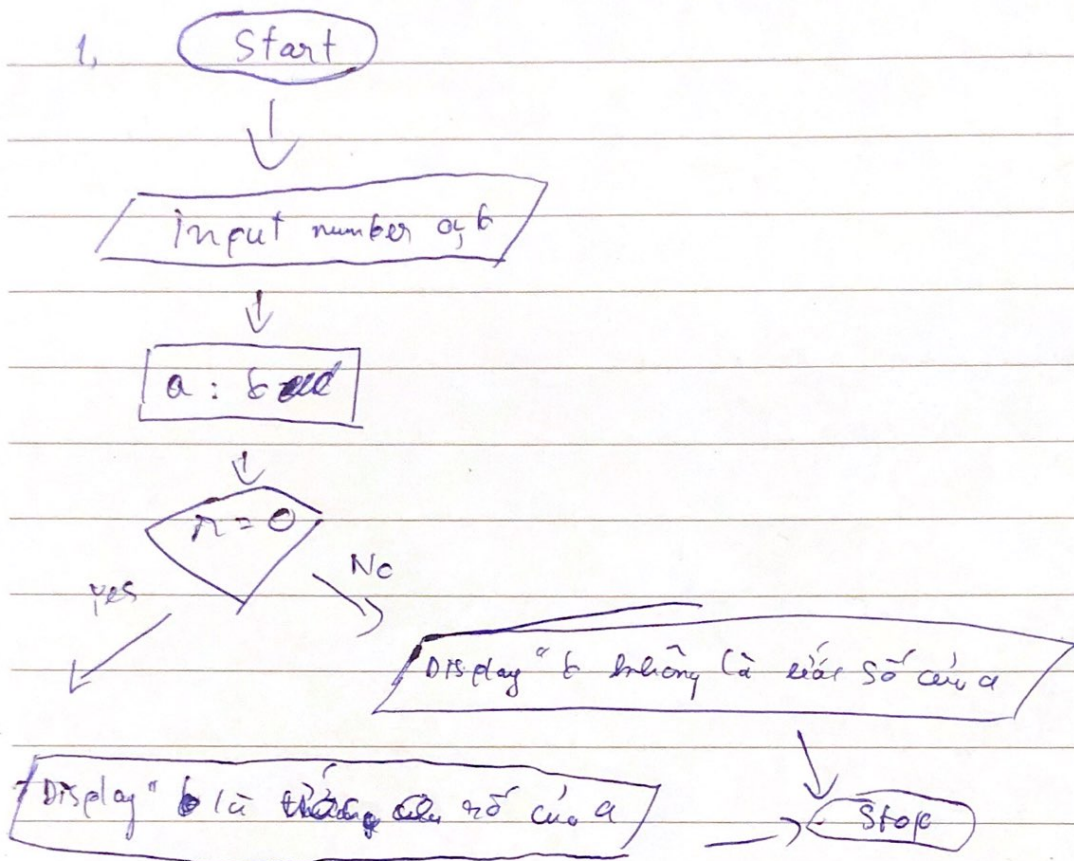 1, Start
Input number a, b
a : b
r = 0
yes
No
Display " b không là ước số của a
Display " b là số của a
Stop